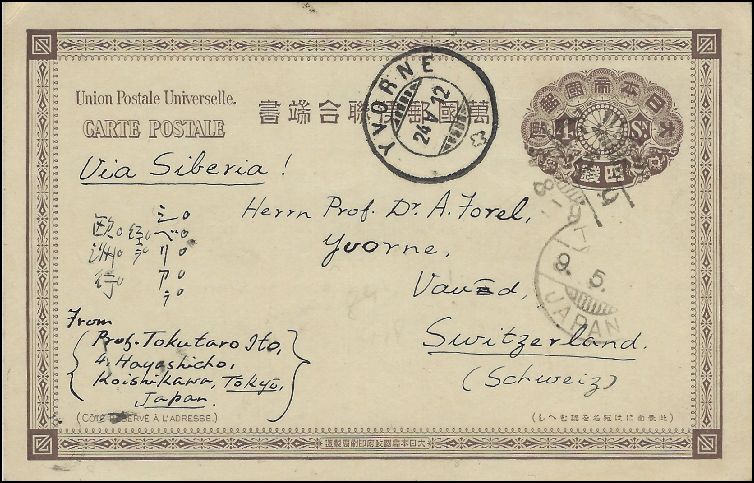 Union Postale Universelle.
CARTE POSTALE
萬國郵便聯合端書
大日本帝國郵便
四錢
YVORNE
24 V 12
Via Siberia!
シベリア
ヲ経
欧洲行
Herrn Prof. Dr. A. Forel,
Yvorne,
Vaud,
Switzerland.
(Schweiz)
9. 5.
JAPAN
From
Prof. Tokutaro Ito,
4, Hayashicho,
Koishikawa, Tokyo,
Japan.
(CÔTÉ RÉSERVÉ À L'ADRESSE.)
(此表面には宛名を認むへし)
大日本帝國政府印刷局製造